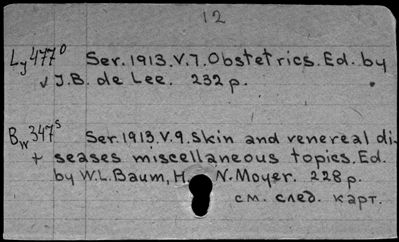 12
Ly 477⁰ Ser. 1913. V. 7. Obstetrics. Ed. by
J.B. de Lee. 232 p.
Bw 347ˢ Ser. 1913. V. 9. Skin and venereal di-
+ seases miscellaneous topics. Ed.
by W.L. Baum, H. N. Moyer. 228 p.
см. след. карт.